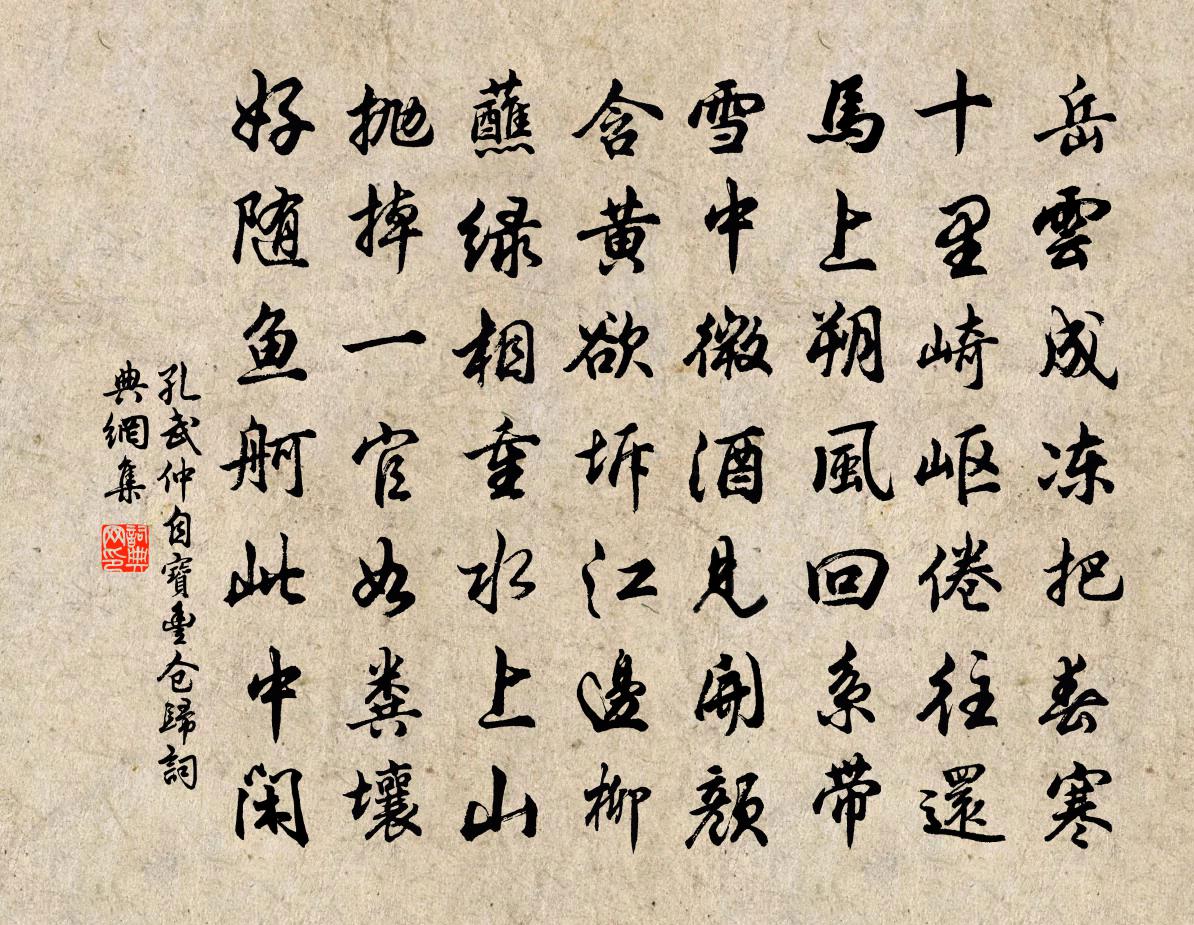 岳雲成冻把春寒
十里崎岖倦往還
馬上朔風回系带
雪中微酒見開顔
含黄欲坼江邊柳
蘸绿相重水上山
抛掉一官如粪壤
好随鱼舸此中闲
孔武仲自寶豊仓歸詞
典網集
詞典网印